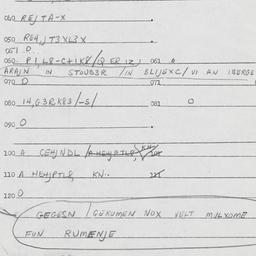 040 REJ TA-X
050 RE4, JT3XL3X
051 D..
060 P1, L8-C+1K8/Q ER 1Z, 061 D
ARAIN IN STOUB3R /IN BLIJEXC/ VI AN IBERGE
070 D 071
080 14, G3R K83/-S/ 081 O
090 D
100 A CEHJNDL /A HEHJPTL8, KN 101
110 A HEHJPTL8, KN.. 111
120 D
GEGESN / GEKUMEN NOX VELT MILXOME
FUN RUMENJE